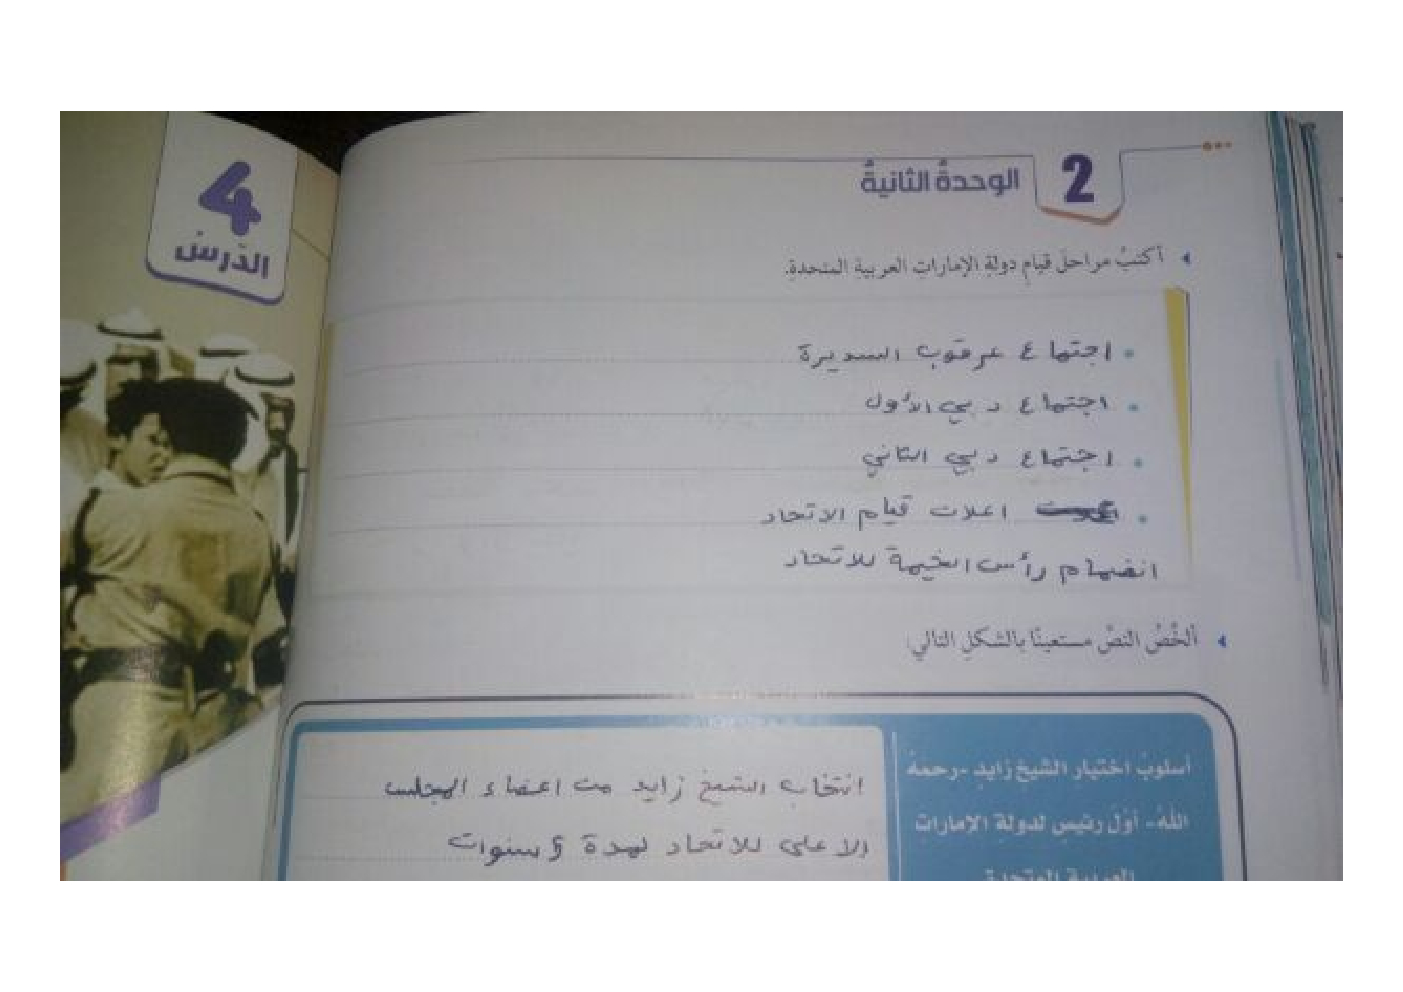 4
الدرس
2
الوحدة الثانية
أكتب مراحل قيام دولة الإمارات العربية المتحدة.
اجتماع عرقوب السديرة
اجتماع دبي الأول
اجتماع دبي الثاني
اعلان قيام الاتحاد
انضمام رأس الخيمة للاتحاد
ألخص النص مستعينا بالشكل التالي:
أسلوب اختيار الشيخ زايد -رحمه
الله- أول رئيس لدولة الإمارات
العربية المتحدة
انتخاب الشيخ زايد من اعضاء المجلس
الاعلى للاتحاد لمدة 5 سنوات